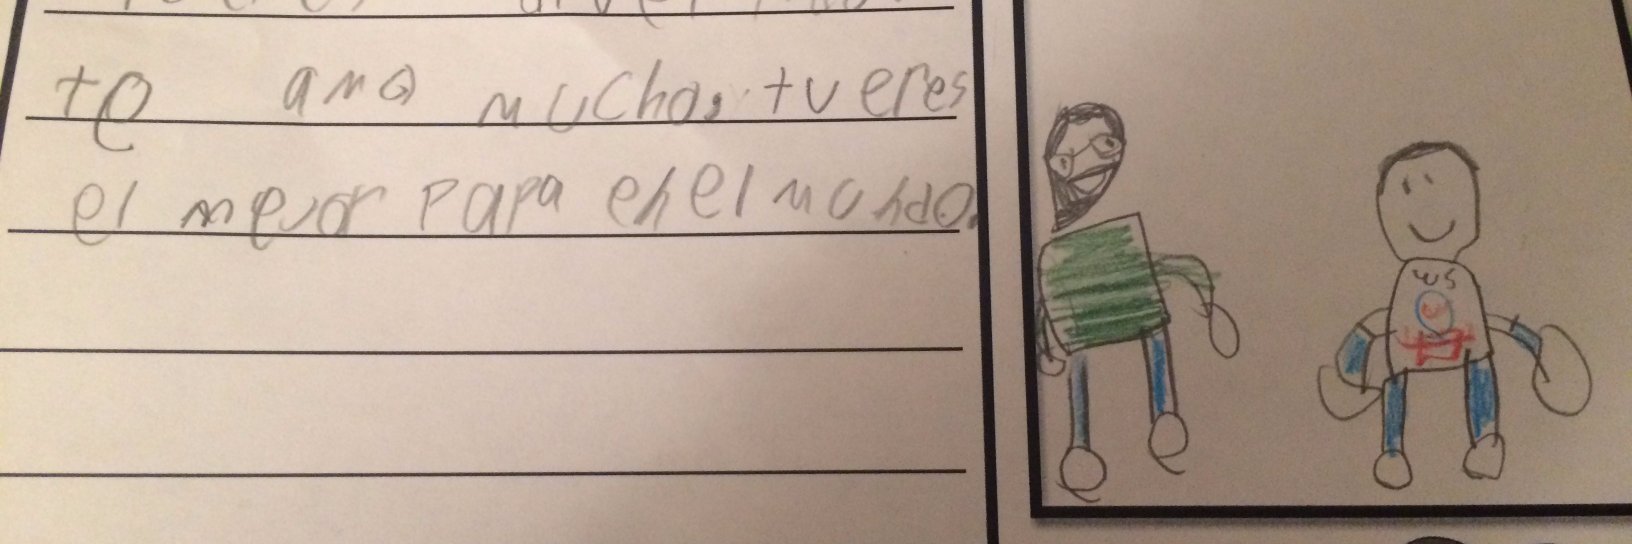 te amo mucho, tu eres
el mejor papa en el mundo.
WS